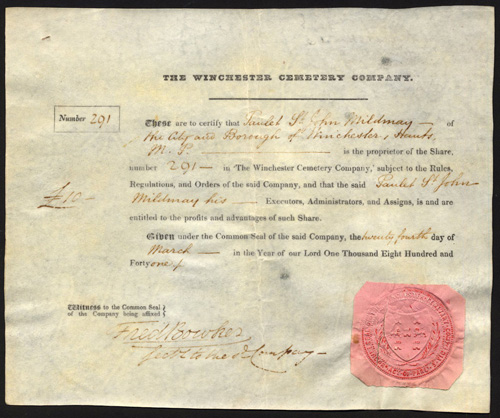 THE WINCHESTER CEMETERY COMPANY.
Number 291
These are to certify that Paulet St John Mildmay — of
the City and Borough of Winchester, Hants,
M. P. — is the proprietor of the Share,
number 291 — in 'The Winchester Cemetery Company,' subject to the Rules,
Regulations, and Orders of the said Company, and that the said Paulet St John
£10 —
Mildmay his — Executors, Administrators, and Assigns, is and are
entitled to the profits and advantages of such Share.
Given under the Common Seal of the said Company, the twenty fourth day of
March — in the Year of our Lord One Thousand Eight Hundred and
Forty one
Witness to the Common Seal
of the Company being affixed
Fred Bowker